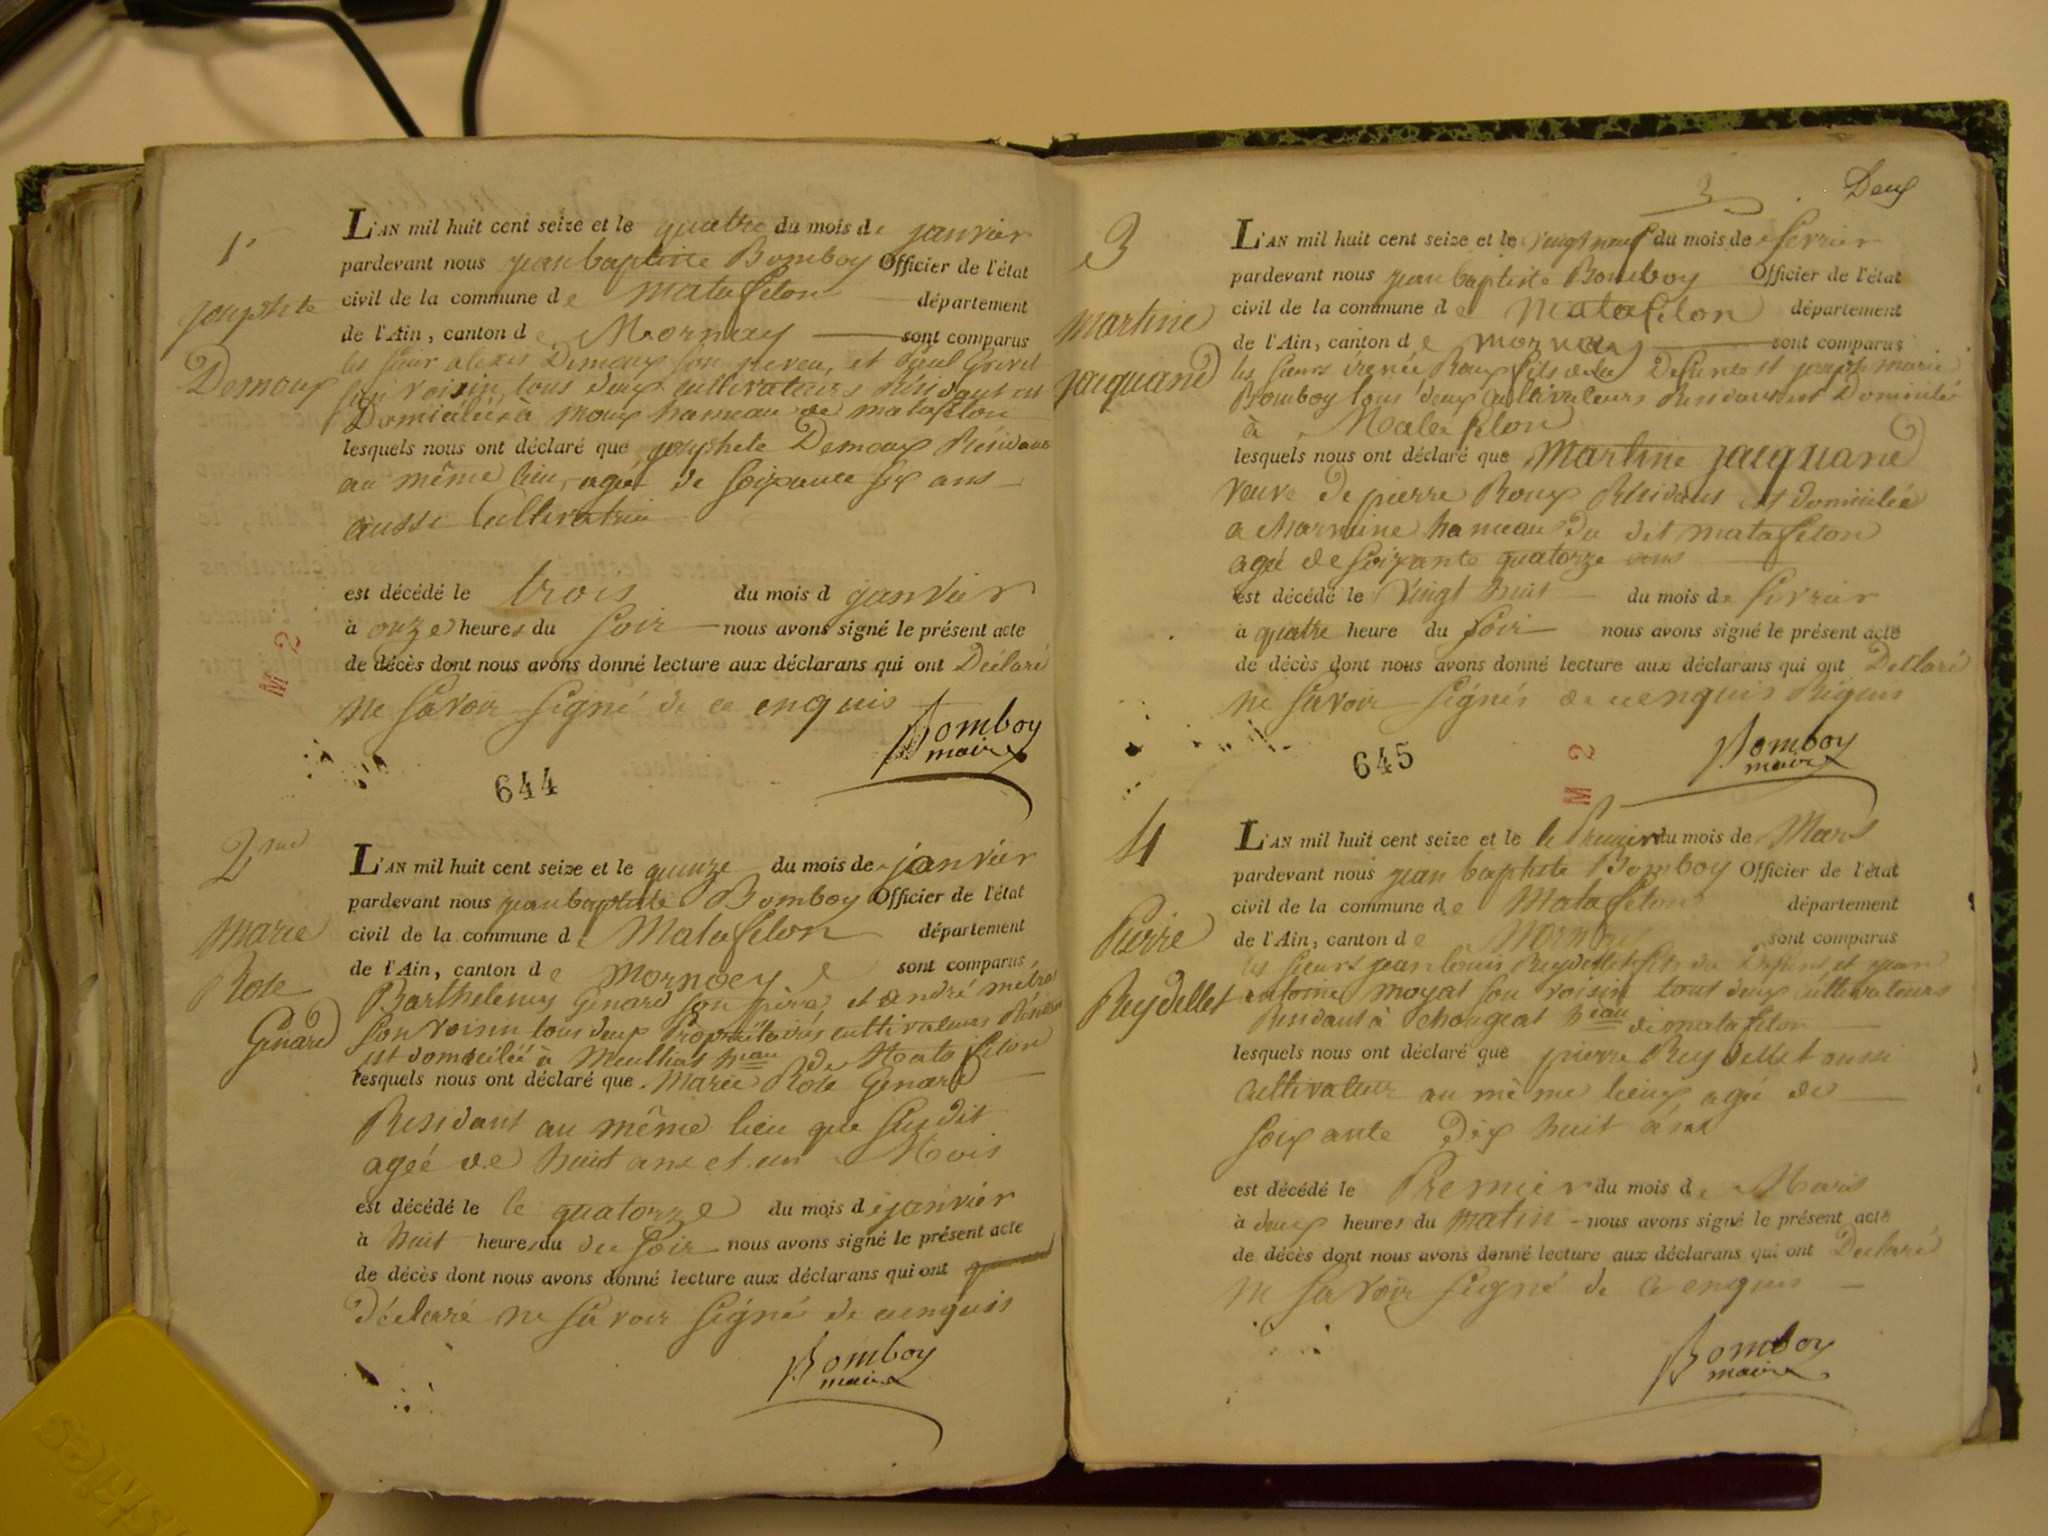 1r
L'AN mil huit cent seize et le quatre du mois de janvier
pardevant nous jean baptiste Bomboy Officier de l'état
civil de la commune de Matafelon département
de l'Ain, canton de Mornay sont comparus
josephte
Demoux
les sieur alexis Demoux son neveu, et
son voisin, tous deux cultivateurs Résidant et
Domiciliés à moux hameau de matafelon
lesquels nous ont déclaré que josephete Demoux Résidant
au même lieu, agée de soixante six ans
aussi Cultivatrice
est décédé le trois du mois d janvier
à onze heures du soir nous avons signé le présent acte
de décès dont nous avons donné lecture aux déclarans qui ont Déclaré
ne savoir signé de ce enquis
Bomboy
maire
M 2
644
2me
L'AN mil huit cent seize et le quinze du mois de janvier
pardevant nous jean baptiste Bomboy Officier de l'état
civil de la commune de Matafelon département
de l'Ain, canton de Mornaey sont comparus
Marie
Rose
Genard
Barthelemy Genard son père et andré
son voisin tous deux Propriétaires cultivateurs
et domicilié à hau de Matafelon
lesquels nous ont déclaré que Marie Rose Genard
Résidant au même lieu que susdit
ageé de huit ans et un Mois
est décédé le le quatorze du mois de janvier
à huit heures du du soir nous avons signé le présent acte
de décès dont nous avons donné lecture aux déclarans qui ont
déclaré ne savoir signé de cenquis
Bomboy
maire
3
Deux
3
L'AN mil huit cent seize et le vingt neuf du mois de fevrier
pardevant nous jean baptiste Bomboy Officier de l'état
civil de la commune de Matafelon département
de l'Ain, canton de Mornay sont comparus
martine
jacquand
les sieurs irenée Roux fils de la Defunte et joseph marie
Bomboy tous deux Cultivateurs Résidant et Domiciliés
à Matafelon
lesquels nous ont déclaré que Martine jacquand
veuve de pierre Roux Résidant et domiciliée
a hameau du dit matafelon
agé de soixante quatorze ans
est décédé le vingt huit du mois de fevrier
à quatre heure du soir nous avons signé le présent acte
de décès dont nous avons donné lecture aux déclarans qui ont Déclaré
ne savoir signés de cenquis Réquis
Bomboy
maire
645
M 2
4
L'AN mil huit cent seize et le le Premier du mois de Mars
pardevant nous jean baptiste Bomboy Officier de l'état
civil de la commune de Matafelon département
de l'Ain, canton de Mornay sont comparus
Pierre
Reydellet
les sieurs jean louis Reydellet fils du Defunt et jean
antoine moyat son voisin tout deux cultivateurs
Résidant à Chougeat hau de matafelon
lesquels nous ont déclaré que pierre Reydellet aussi
Cultivateur au même lieux agé de
soixante Dix huit ans
est décédé le Premier du mois de Mars
à deux heures du matin nous avons signé le présent acte
de décès dont nous avons donné lecture aux déclarans qui ont Déclaré
ne savoir signé de ce enquis
Bomboy
maire